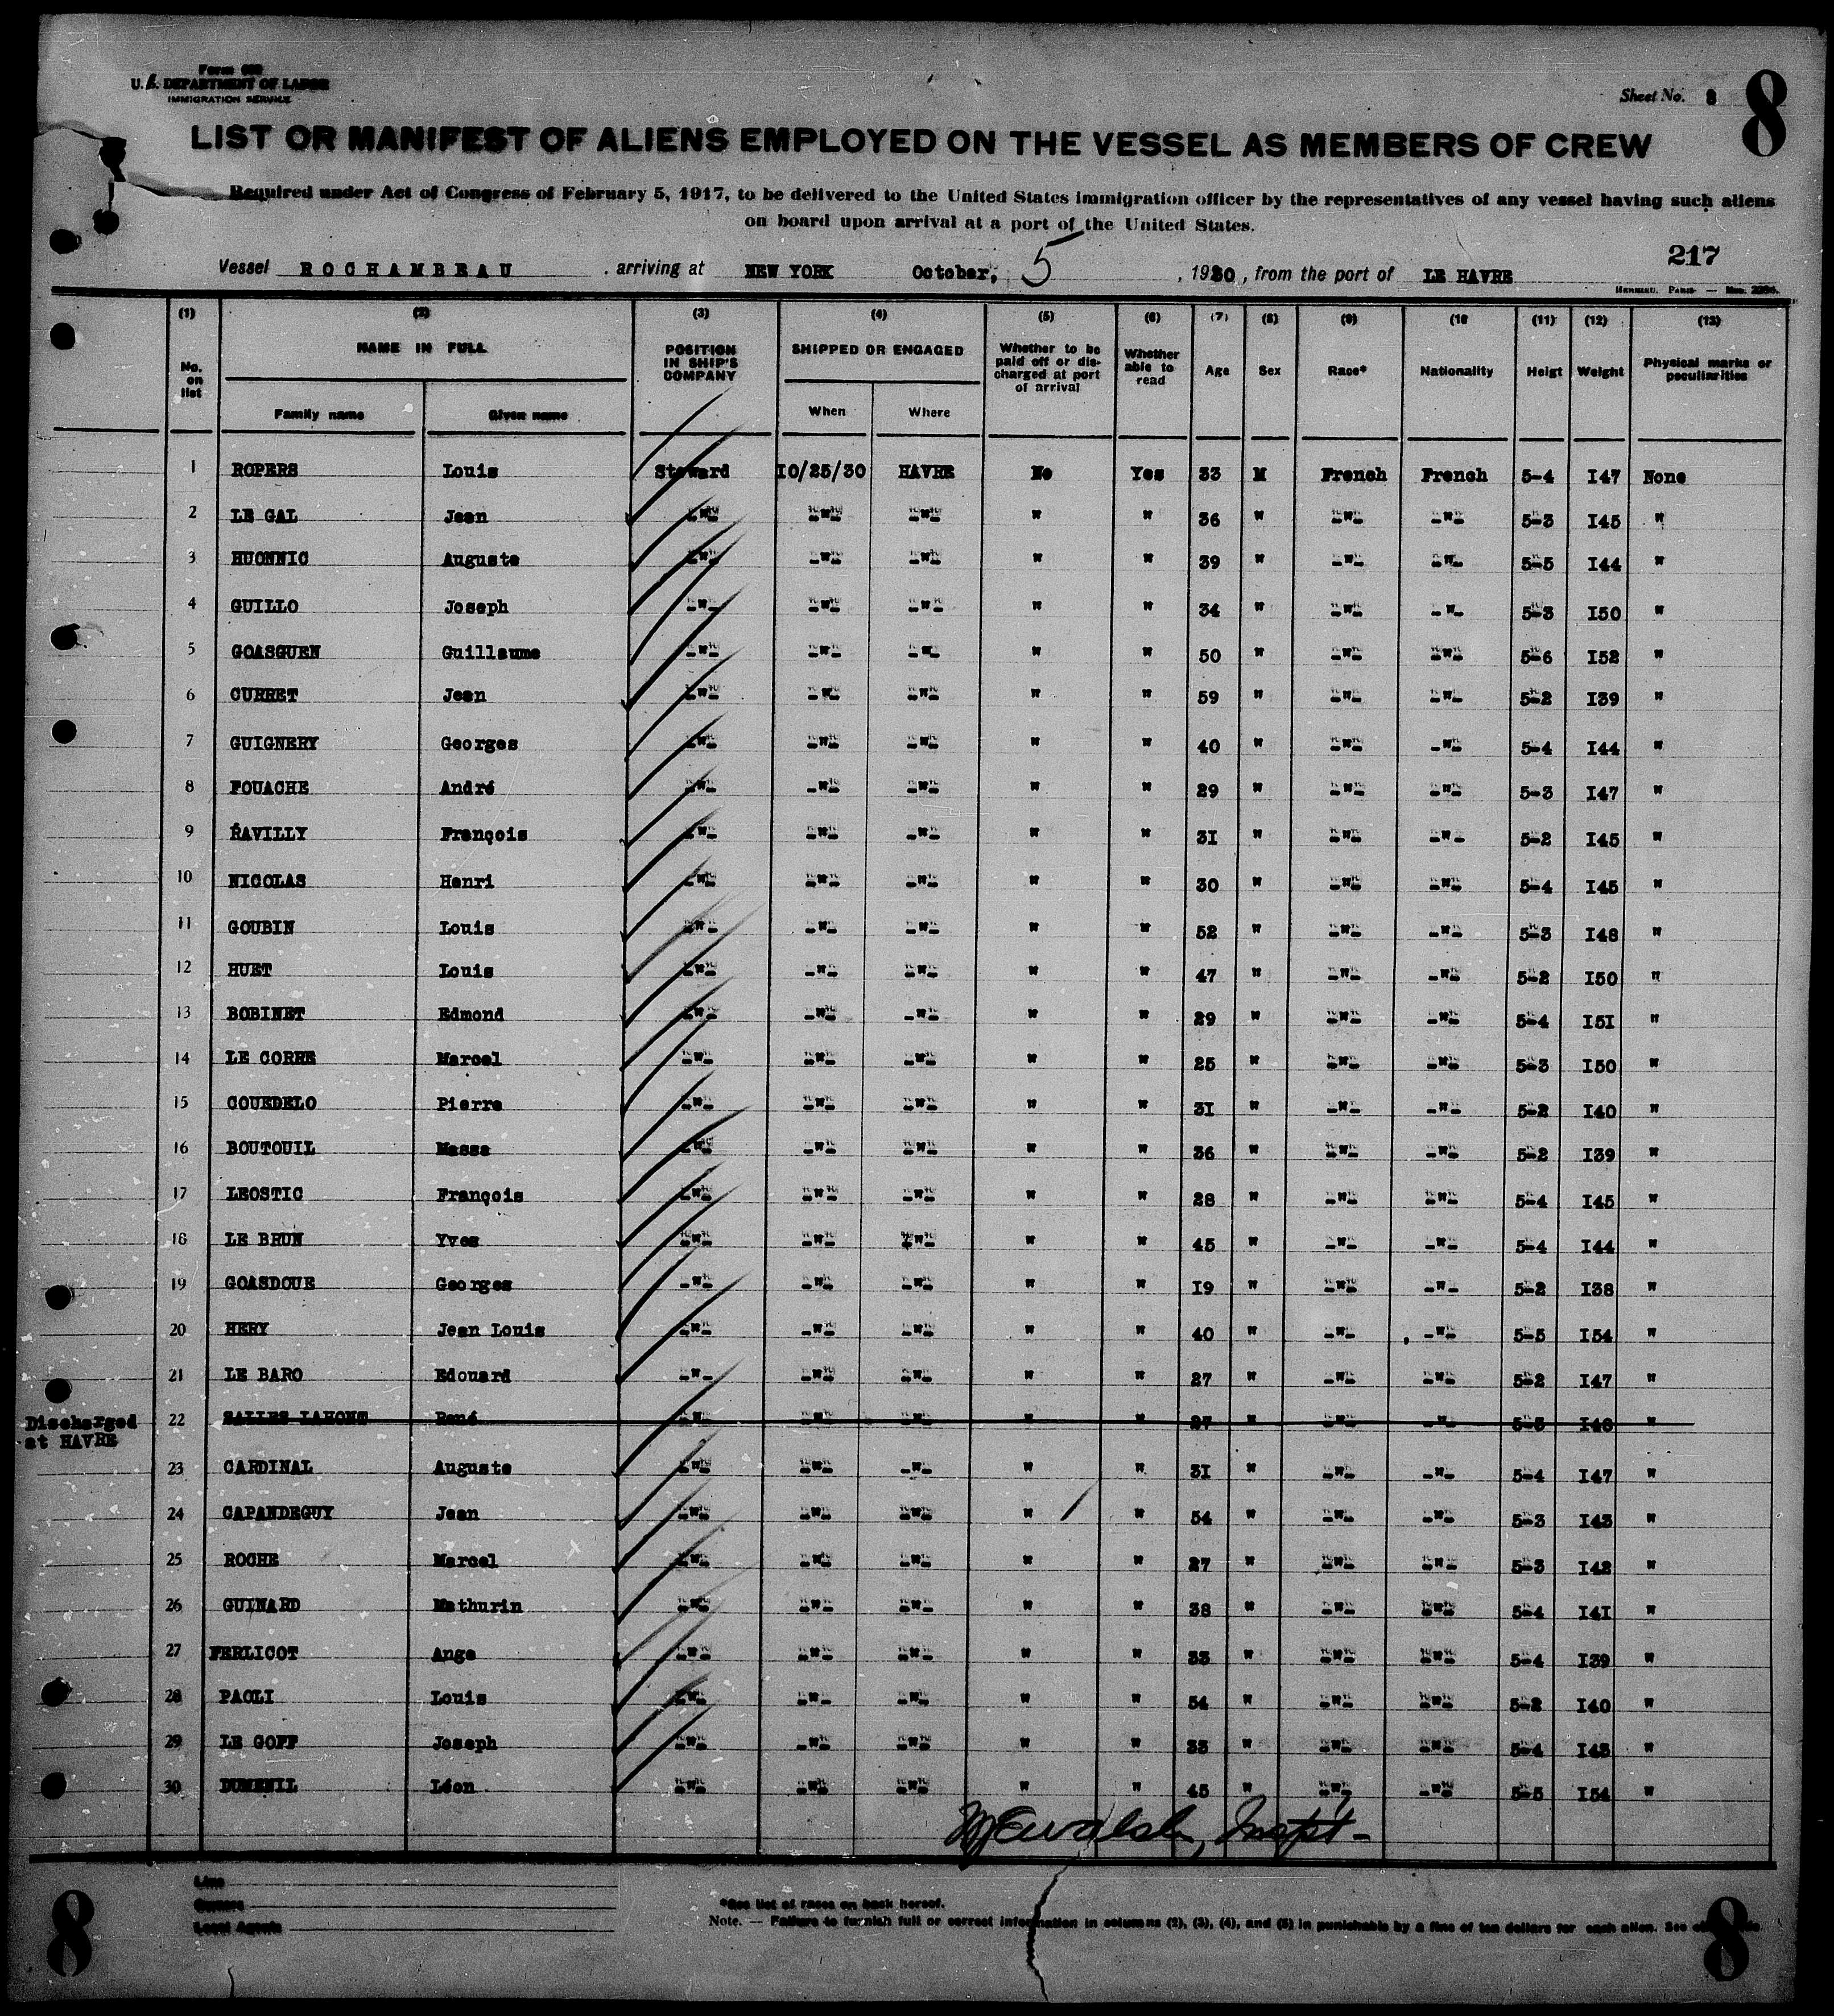 Form 689
U. S. DEPARTMENT OF LABOR
IMMIGRATION SERVICE
Sheet No. 8
8
LIST OR MANIFEST OF ALIENS EMPLOYED ON THE VESSEL AS MEMBERS OF CREW
Required under Act of Congress of February 5, 1917, to be delivered to the United States immigration officer by the representatives of any vessel having such aliens
on board upon arrival at a port of the United States.
217
Vessel ROCHAMBEAU . arriving at NEW YORK October, 5 , 1930, from the port of LE HAVRE
(1) (2) (3) (4) (5) (6) (7) (8) (9) (10 (11) (12) (13)
No. on list NAME IN FULL Family name Given name POSITION IN SHIP'S COMPANY SHIPPED OR ENGAGED When Where Whether to be paid off or discharged at port of arrival Whether able to read Age Sex Race* Nationality Heigt Weight Physical marks or peculiarities
1 ROPERS Louis Steward I0/25/30 HAVRE No Yes 33 M French French 5-4 I47 None
2 LE GAL Jean -"- -"- -"- " " 36 " -"- -"- 5-3 I45 "
3 HUONNIC Auguste -"- -"- -"- " " 39 " -"- -"- 5-5 I44 "
4 GUILLO Joseph -"- -"- -"- " " 34 " -"- -"- 5-3 I50 "
5 GOASGUEN Guillaume -"- -"- -"- " " 50 " -"- -"- 5-6 I52 "
6 CURRET Jean -"- -"- -"- " " 59 " -"- -"- 5-2 I39 "
7 GUIGNERY Georges -"- -"- -"- " " 40 " -"- -"- 5-4 I44 "
8 FOUACHE André -"- -"- -"- " " 29 " -"- -"- 5-3 I47 "
9 RAVILLY François -"- -"- -"- " " 3I " -"- -"- 5-2 I45 "
10 NICOLAS Henri -"- -"- -"- " " 30 " -"- -"- 5-4 I45 "
11 GOUBIN Louis -"- -"- -"- " " 52 " -"- -"- 5-3 I48 "
12 HUET Louis -"- -"- -"- " " 47 " -"- -"- 5-2 I50 "
13 BOBINET Edmond -"- -"- -"- " " 29 " -"- -"- 5-4 I5I "
14 LE CORRE Marcel -"- -"- -"- " " 25 " -"- -"- 5-3 I50 "
15 COUEDELO Pierre -"- -"- -"- " " 3I " -"- -"- 5-2 I40 "
16 BOUTOUIL Massa -"- -"- -"- " " 36 " -"- -"- 5-2 I39 "
17 LEOSTIC François -"- -"- -"- " " 28 " -"- -"- 5-4 I45 "
18 LE BRUN Yves -"- -"- -"- " " 45 " -"- -"- 5-4 I44 "
19 GOASDOUE Georges -"- -"- -"- " " I9 " -"- -"- 5-2 I38 "
20 HERY Jean Louis -"- -"- -"- " " 40 " -"- -"- 5-5 I54 "
21 LE BARO Edouard -"- -"- -"- " " 27 " -"- -"- 5-2 I47 "
Discharged at HAVRE 22 SALLES LAHONT René -"- -"- -"- " " 27 " -"- -"- 5-5 I48 "
23 CARDINAL Auguste -"- -"- -"- " " 3I " -"- -"- 5-4 I47 "
24 CAPANDEGUY Jean -"- -"- -"- " " 54 " -"- -"- 5-3 I43 "
25 ROCHE Marcel -"- -"- -"- " " 27 " -"- -"- 5-3 I42 "
26 GUINARD Mathurin -"- -"- -"- " " 38 " -"- -"- 5-4 I4I "
27 FERLICOT Ange -"- -"- -"- " " 33 " -"- -"- 5-4 I39 "
28 PAOLI Louis -"- -"- -"- " " 54 " -"- -"- 5-2 I40 "
29 LE GOFF Joseph -"- -"- -"- " " 33 " -"- -"- 5-4 I43 "
30 DUMENIL Léon -"- -"- -"- " " 45 " -"- -"- 5-5 I54 "
Walsh, Inspt-
Line
Owners
Local Agents
*See list of races on back hereof.
Note. — Failure to furnish full or correct information in columns (2), (3), (4), and (5) is punishable by a fine of ten dollars for each alien. See
8
8